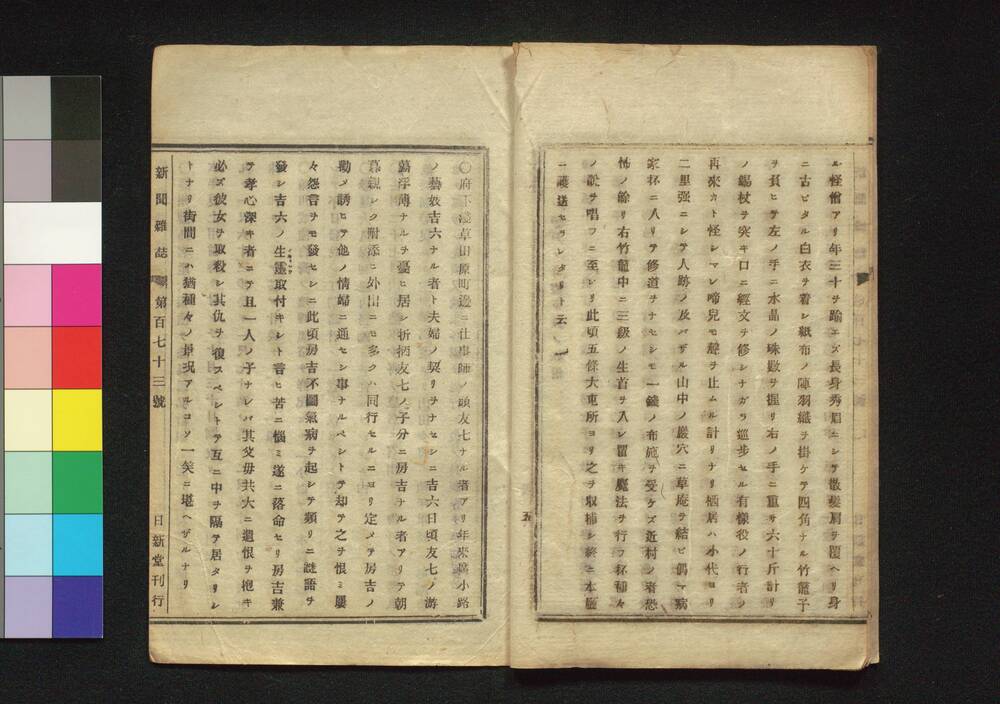 ル怪僧アリ年三十ヲ踰エズ長身秀眉ニシテ散髮肩ヲ覆ヘリ身
ニ古ビタル白衣ヲ着シ紙布ノ陣羽織ヲ掛ケテ四角ナル竹籠子
ヲ負ヒテ左ノ手ニ水晶ノ珠數ヲ握リ右ノ手ニ重サ六十斤計リ
ノ錫杖ヲ突キ口ニ經文ヲ修シナガラ巡歩セル有樣役ノ行者ノ
再來カト怪シマレ啼兒モ聲ヲ止ムル計リナリ栖居ハ小代ヨリ
二里强ニシテ人跡ノ及バザル山中ノ巖穴ニ草庵ヲ結ビ偶マ病
家杯ニ入リテ修道ヲナセシモ一錢ノ布施ヲ受ケズ近村ノ者恐
怖ノ餘リ右竹籠中ニ三級ノ生首ヲ入レ置キ魔法ヲ行フ杯種々
ノ說ヲ唱フニ至レリ此頃五條大屯所ヨリ之ヲ取補シ終ニ本廳
ニ護送セラレタリト云フ
五
〇府下淺草田原町邊ニ仕事師ノ頭友七ナル者アリ年來廣小路
ノ藝妓吉六ナル者ト夫婦ノ契リヲナセシニ吉六日頃友七ノ游
蕩浮薄ナルヲ憂ヒ居シ折柄友七ノ子分ニ房吉ナル者アリテ朝
暮親シク附添ヒ外出ニモ多クハ同行セルニヨリ定メテ房吉ノ
勸メ誘ヒテ他ノ情婦ニ通セシ事ナルベシトテ却テ之ヲ恨ミ屢
々怨言ヲモ發セシニ此頃房吉不圖氣病ヲ起シテ頻リニ譫語ヲ
發シ吉六ノ生靈取付キシト言ヒ苦ミ惱ミ遂ニ落命セリ房吉兼
テ孝心深キ者ニテ且一人ノ子ナレバ其父毋共大ニ遺恨ヲ抱キ
必ズ彼女ヲ取殺シ其仇ヲ復スベシトテ互ニ中ヲ隔テ居タリシ
トナリ街間ニハ猶種々ノ景况アルコソ一笑ニ堪ヘザルナリ
新聞雜誌 第百七十三號 日新堂刊行